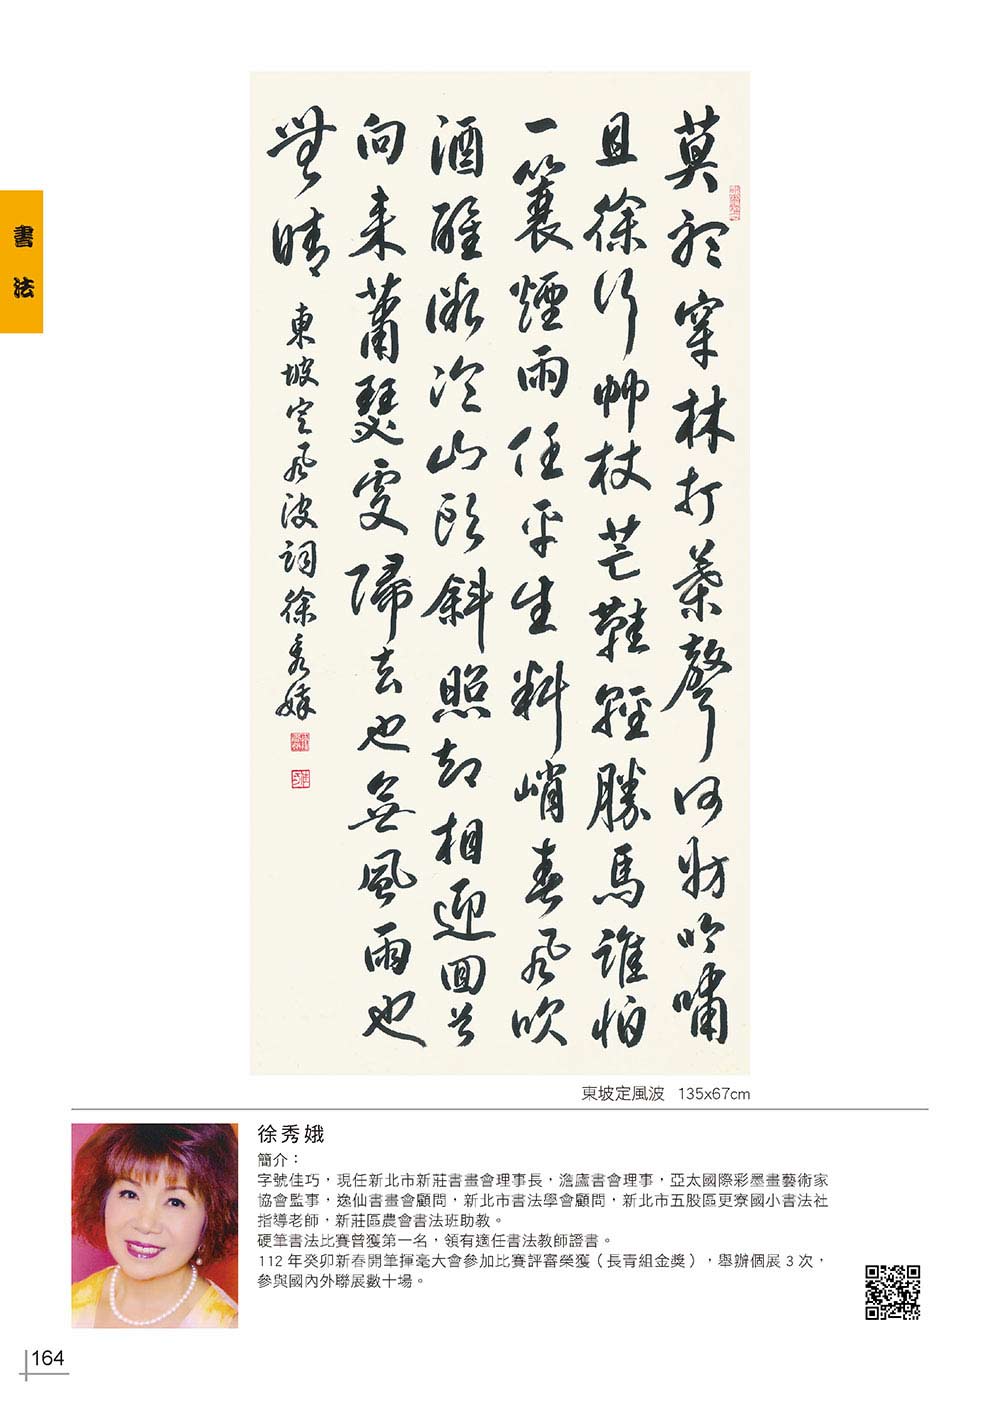 書法
莫聽穿林打葉聲何妨吟嘯
且徐行竹杖芒鞋輕勝馬誰怕
一簑煙雨任平生料峭春風吹
酒醒微冷山頭斜照却相迎回首
向來蕭瑟處歸去也無風雨也
無晴 東坡定風波詞徐秀娥
東坡定風波 135x67cm
徐秀娥
簡介：
字號佳巧，現任新北市新莊書畫會理事長，澹廬書會理事，亞太國際彩墨畫藝術家
協會監事，逸仙書畫會顧問，新北市書法學會顧問，新北市五股區更寮國小書法社
指導老師，新莊區農會書法班助教。
硬筆書法比賽曾獲第一名，領有適任書法教師證書。
112 年癸卯新春開筆揮毫大會參加比賽評審榮獲（長青組金獎），舉辦個展 3 次，
參與國內外聯展數十場。
164